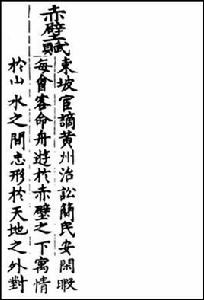 赤壁賦
東坡官謫黃州治訟簡民安閑暇
每會客命舟遊於赤壁之下寓情
於山水之間忘形於天地之外對